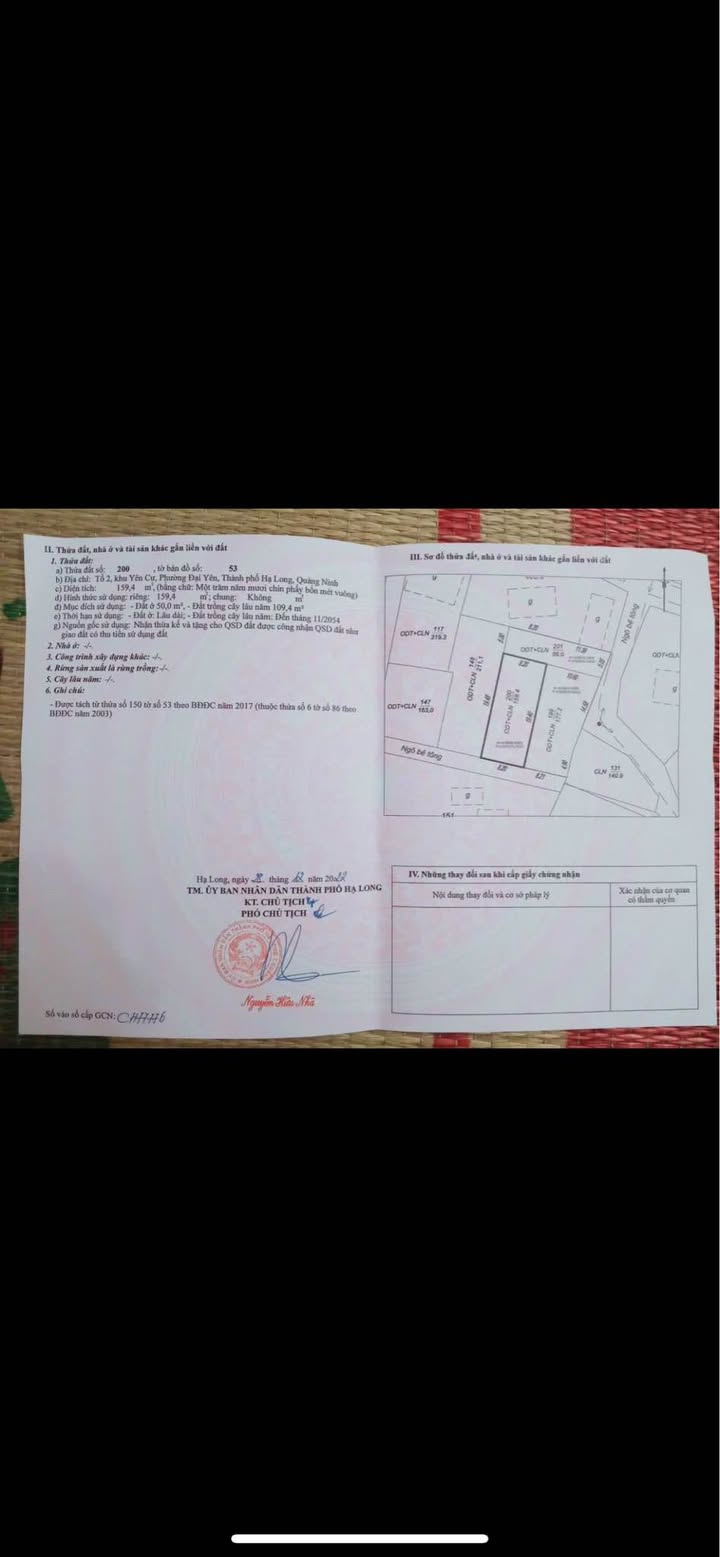 II. Thửa đất, nhà ở và tài sản khác gắn liền với đất
1. Thửa đất:
a) Thửa đất số: 200 , tờ bản đồ số: 53
b) Địa chỉ: Tổ 2, khu Yên Cư, Phường Đại Yên, Thành phố Hạ Long, Quảng Ninh
c) Diện tích: 159,4 m², (bằng chữ: Một trăm năm mươi chín phẩy bốn mét vuông)
d) Hình thức sử dụng: riêng: 159,4 m²; chung: Không m²
đ) Mục đích sử dụng: - Đất ở 50,0 m², - Đất trồng cây lâu năm 109,4 m²
e) Thời hạn sử dụng: - Đất ở: Lâu dài; - Đất trồng cây lâu năm: Đến tháng 11/2054
g) Nguồn gốc sử dụng: Nhận thừa kế và tặng cho QSD đất được công nhận QSD đất như
giao đất có thu tiền sử dụng đất
2. Nhà ở: -/-.
3. Công trình xây dựng khác: -/-.
4. Rừng sản xuất là rừng trồng: -/-.
5. Cây lâu năm: -/-.
6. Ghi chú:
- Được tách từ thửa số 150 tờ số 53 theo BĐĐC năm 2017 (thuộc thửa số 6 tờ số 86 theo
BĐĐC năm 2003)
Hạ Long, ngày 28 tháng 12 năm 2022
TM. ỦY BAN NHÂN DÂN THÀNH PHỐ HẠ LONG
KT. CHỦ TỊCH
PHÓ CHỦ TỊCH
Nguyễn Hữu Nhã
Số vào sổ cấp GCN:
III. Sơ đồ thửa đất, nhà ở và tài sản khác gắn liền với đất
g
g
g
g
Ngõ bê tông
ODT+CLN 117
219.3
ODT+CLN 149
211.1
ODT+CLN 201
ODT+CLN 200
159.4
ODT+CLN 199
177.2
ODT+CLN 147
163.0
Ngõ bê tông
CLN 131
140.9
8.20
8.21
151
IV. Những thay đổi sau khi cấp giấy chứng nhận
Nội dung thay đổi và cơ sở pháp lý
Xác nhận của cơ quan
có thẩm quyền